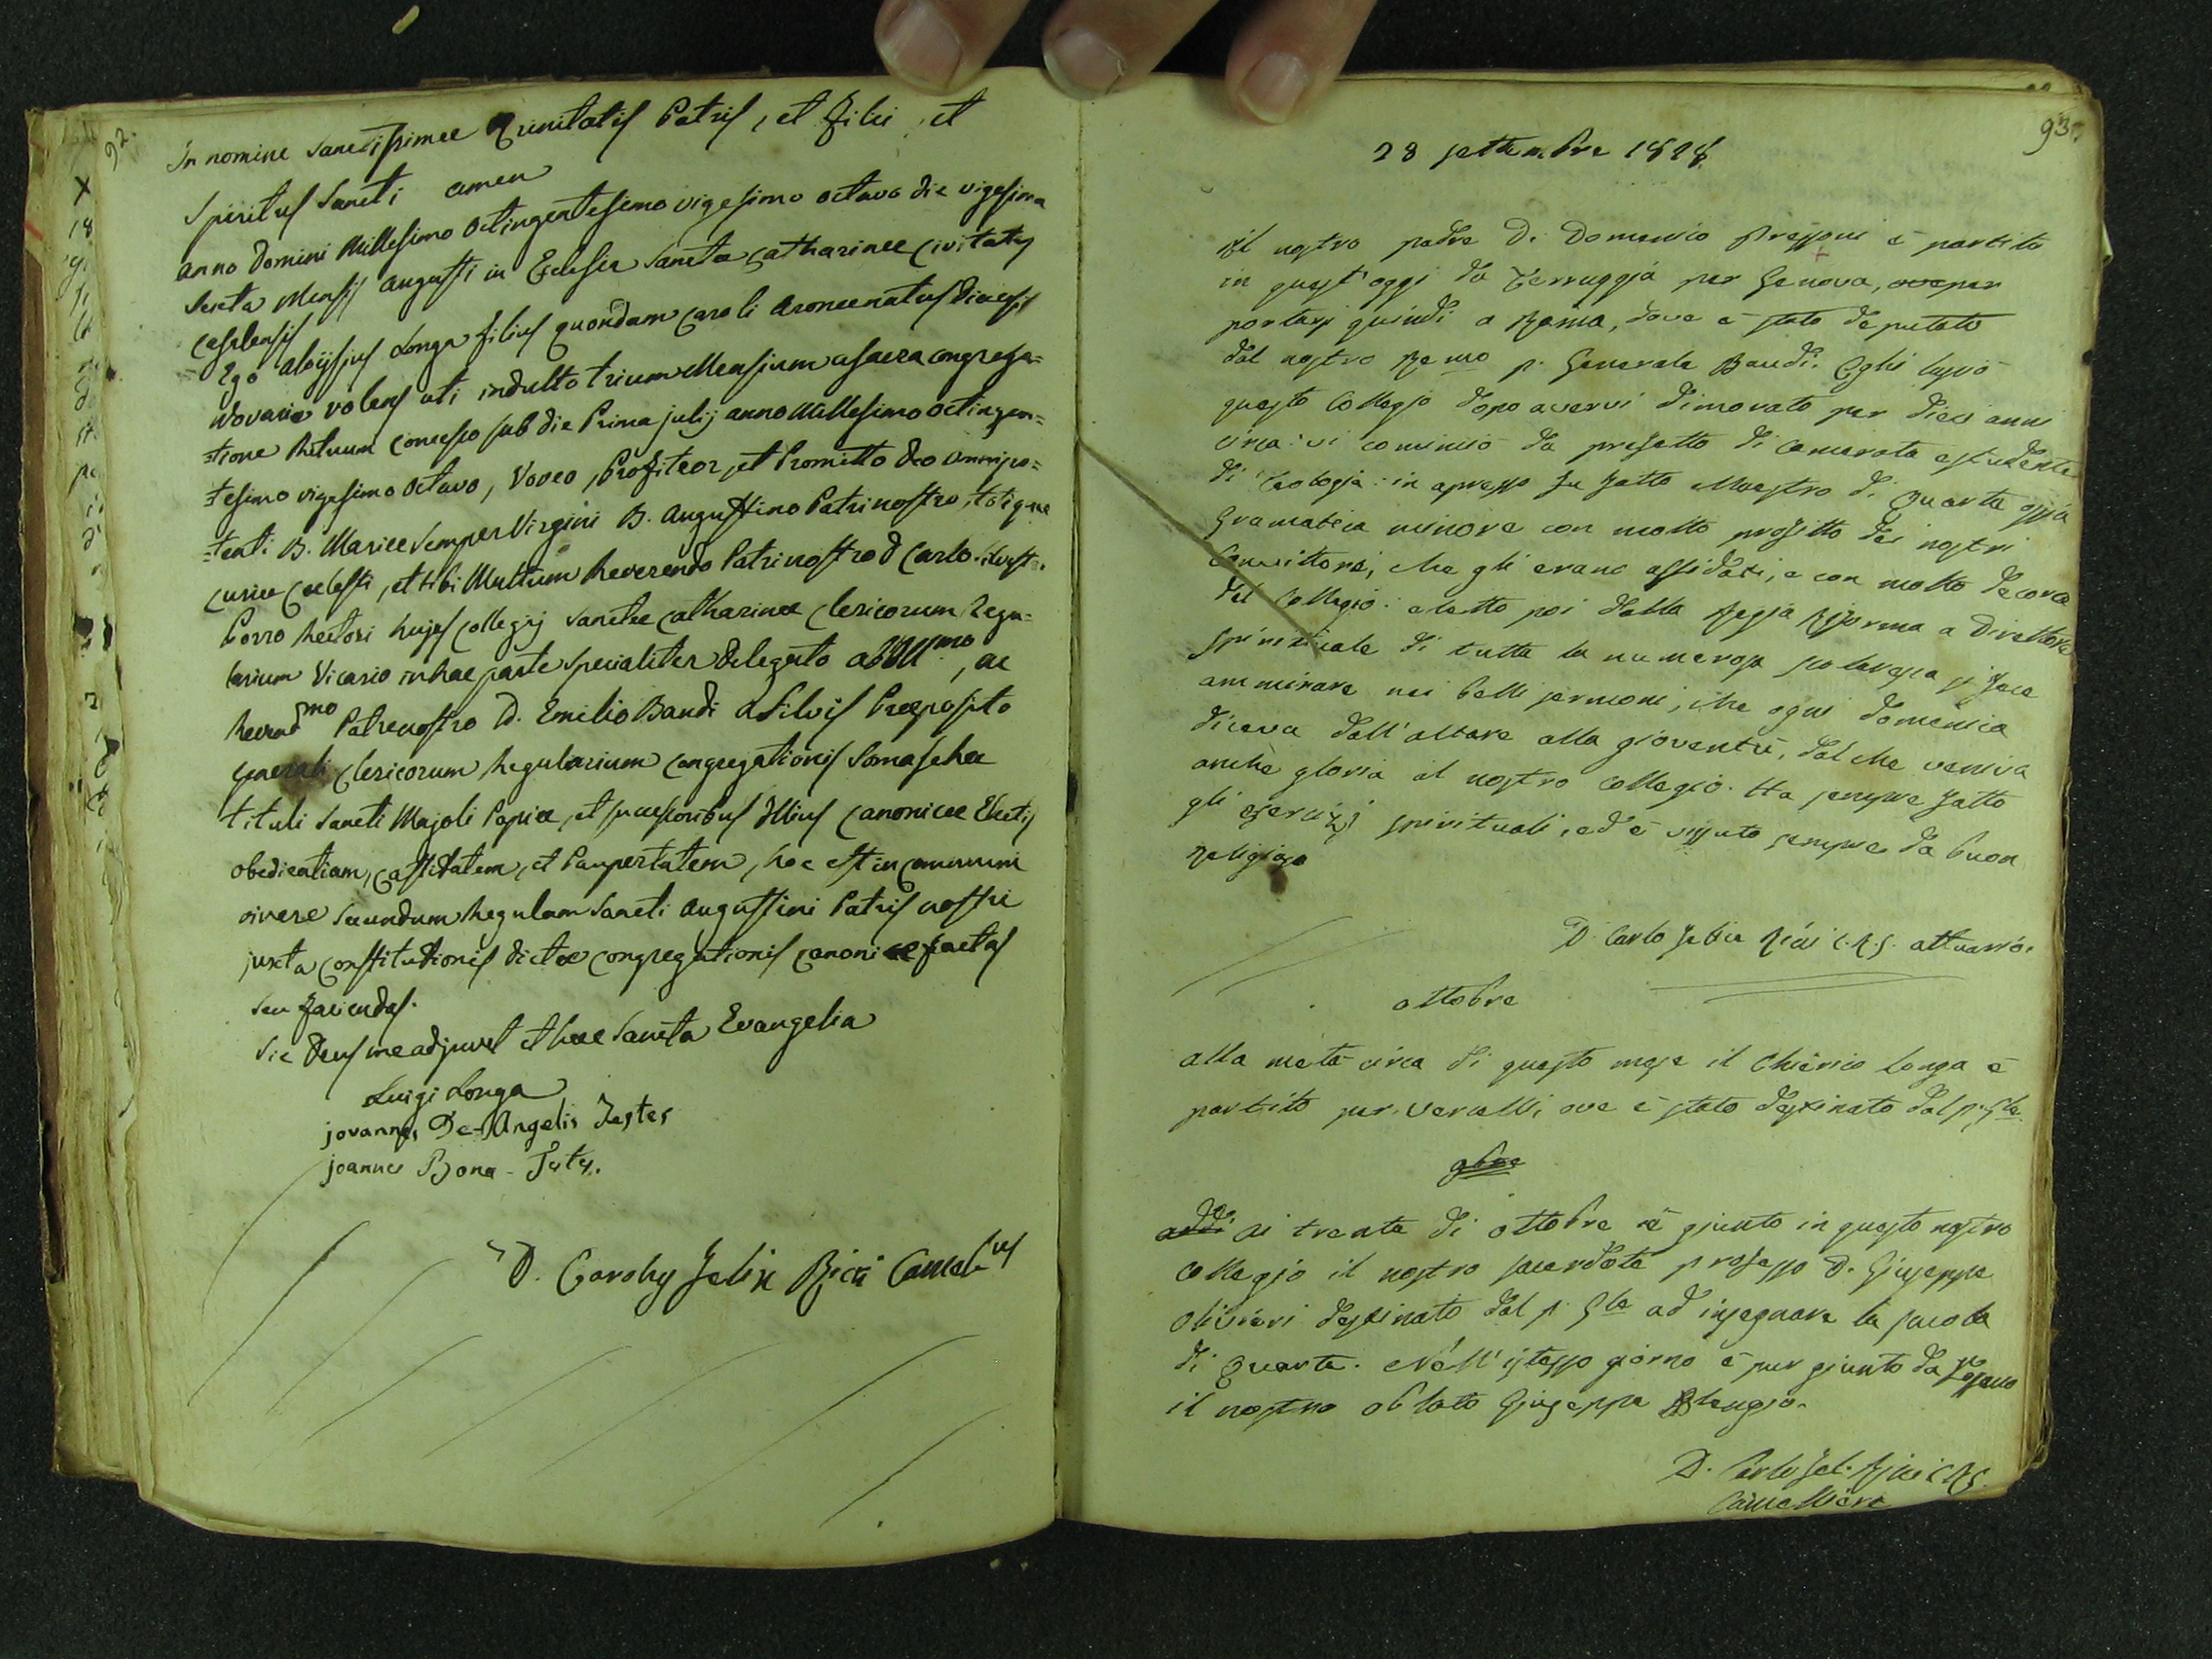 92.
In nomine Sanctissimæ Trinitatis Patris, et Filii, et
Spiritus Sancti amen
anno Domini Millesimo Octingentesimo vigesimo octavo die vigesima
sexta Mensis Augusti in Ecclesia Sanctæ Catharinæ Civitatis
Casalensis
Ego Aloysius Longa filius quondam Caroli Aronæ natus Diœcesis
Novariæ volens uti indulto trium Mensium a sacra congrega=
=tione Rituum concesso sub die Prima julij anno Millesimo octingen=
=tesimo vigesimo octavo, Voveo, Profiteor, et Promitto Deo omnipo=
=tenti B. Mariæ semper Virgini B. Augustino Patri nostro, totique
curiæ Cœlesti, et tibi Multum Reverendo Patri nostro D Carlo
Porro Rectori hujus Collegij Sanctæ Catharinæ Clericorum Regu=
larium Vicario in hac parte specialiter delegato ab Ill.mo, ac
Reverd.mo Patre nostro D. Emilio Baudi a Silvis Præposito
generali Clericorum Regularium Congregationis Somaschæ
tituli Sancti Majoli Papiæ, et successoribus Illius Canonice Electis
obedientiam, castitatem, et Paupertatem, hoc est in communi
vivere secundum Regulam Sancti Augustini Patris nostri
juxta Constitutionis dictæ congregationis canonice factas
seu faciendas.
Sic Deus me adjuvet et hæc Sancta Evangelia
Luigi Longa
jovannes De-Angelis Testes
joannes Bona - Testes.
D. Carolus Felix Ricci Cancel.us
93.
28 settembre 1828.
Il nostro padre D. Domenico Pressoni è partito
in quest'oggi da Terruggia per Genova, ove per
portarsi quindi a Roma, dove è stato deputato
dal nostro Re.mo p. Generale Baudi. Egli lasciò
questo Collegio dopo avervi dimorato per dieci anni
circa: vi cominciò da prefetto di camerata e studente
di Teologia: in apresso fu fatto Maestro di Quarta ossia
Gramatica minore con molto profitto dei nostri
Convittori, che gli erano affidati, e con molto decoro
del Collegio: eletto poi dalla Regia Riforma a Direttore
spirituale di tutta la numerosa scolaresca si fece
ammirare nei belli sermoni, che ogni domenica
diceva dall'altare alla gioventù, dal che veniva
anche gloria al nostro collegio. Ha sempre fatto
gli esercizj spirituali, ed è vissuto sempre da buon
Religioso
D. Carlo Felice Ricci C.R.S. attuario.
ottobre
alla metà circa di questo mese il Chierico Longa è
partito per Vercelli ove è stato destinato dal p. G.le
9bre
addì ai trenta di ottobre è giunto in questo nostro
collegio il nostro sacerdote professo D. Giuseppe
Olivieri destinato dal p. G.le ad insegnare la scuola
di Quarta. Nell'istesso giorno è pur giunto da Fossano
il nostro oblato Giuseppe Blengio.
D. Carlo Fel. Ricci C.R.S.
Cancelliere